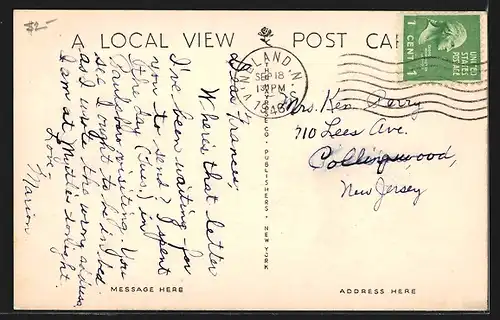 $2-
A LOCAL VIEW POST CARD
VINELAND N.J.
SEP 18
1 30 PM
1946
UNITED
STATES
POSTAGE
1 CENT 1
Dear Frances:
Where's that letter
I've been waiting for
you to send? I spent
the day (Tues.) in
visiting. You
see I ought to be in bed
as I wrote the wrong address
I am at Myrtle's tonight.
Love,
Marion
PUBLISHERS, NEW YORK
Mrs. Ken Derry
710 Lees Ave.
Collingswood,
New Jersey
MESSAGE HERE
ADDRESS HERE